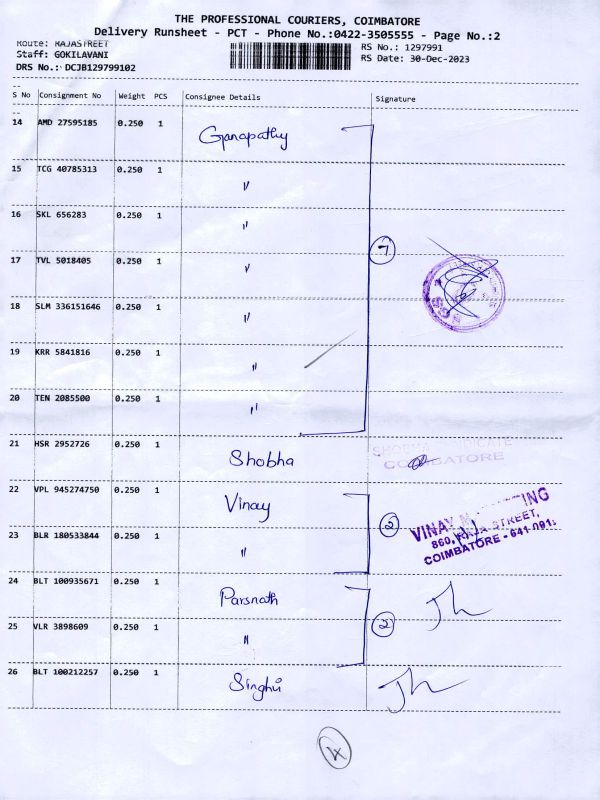 THE PROFESSIONAL COURIERS, COIMBATORE
Delivery Runsheet - PCT - Phone No.:0422-3505555 - Page No.:2
Route: RAJASTREET
RS No.: 1297991
Staff: GOKILAVANI
RS Date: 30-Dec-2023
DRS No.: DCJB129799102
S No Consignment No Weight PCS Consignee Details Signature
14 AMD 27595185 0.250 1 Ganapathy
15 TCG 40785313 0.250 1 "
16 SKL 656283 0.250 1 "
17 TVL 5018405 0.250 1 " 7
18 SLM 336151646 0.250 1 "
19 KRR 5841816 0.250 1 "
20 TEN 2085500 0.250 1 "
21 HSR 2952726 0.250 1 Shobha
SHOBHA
COIMBATORE
22 VPL 945274750 0.250 1 Vinay 2
VINAY
860, RAJA STREET,
COIMBATORE - 641 001.
23 BLR 180533844 0.250 1 "
24 BLT 100935671 0.250 1 Parsnath 2
25 VLR 3898609 0.250 1 "
26 BLT 100212257 0.250 1 Singhvi